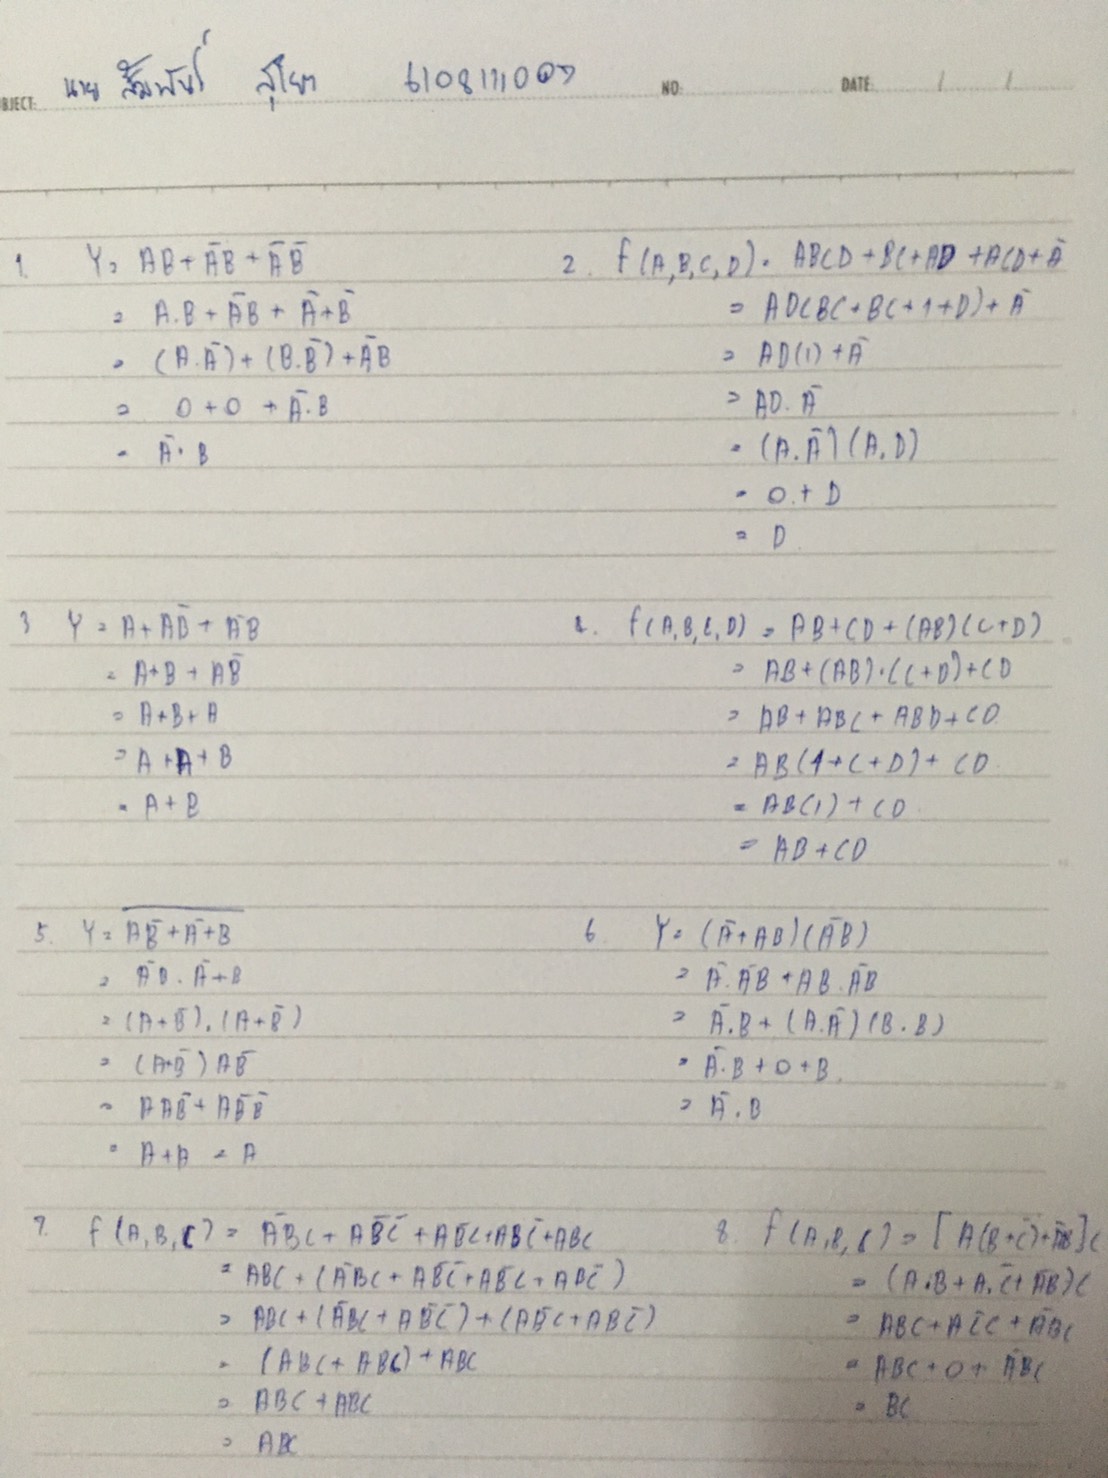 BJECT: นาย สัมพันธ์ สุโยา NO: DATE: / /
1. Y = AB + A̅B + A̅B̅
= A.B + A̅B + A̅+B̅
= (A.A̅) + (B.B̅) + A̅B
= 0 + 0 + A̅.B
= A̅.B
2. f(A,B,C,D) = ABCD + BC + AD + ACD + A̅
= AD(BC + BC + 1 + D) + A̅
= AD(1) + A̅
= AD. A̅
= (A.A̅)(A,D)
= 0.+ D
= D
3 Y = A + AB̅ + A̅B
= A+B + AB̅
= A+B+A
= A+A+B
= A+B
4. f(A,B,C,D) = AB+CD+(AB)(C+D)
= AB+(AB).(C+D)+CD
= AB+ABC+ABD+CD
= AB(1+C+D)+CD
= AB(1)+CD
= AB+CD
5. Y = AB̅+A̅+B
= A̅B. A̅+B
= (A+B̅).(A+B̅)
= (A+B̅)AB̅
= AAB̅+AB̅B̅
= A+A = A
6 Y = (A̅+AB)(A̅B)
= A̅.A̅B+AB.A̅B
= A̅.B+(A.A̅)(B.B)
= A̅.B+0+B
= A̅.B
7. f(A,B,C) = A̅BC+AB̅C̅+AB̅C+ABC̅+ABC
= ABC+(A̅BC+AB̅C̅+AB̅C+ABC̅)
= ABC+(A̅BC+AB̅C̅)+(AB̅C+ABC̅)
= (ABC+ABC)+ABC
= ABC+ABC
= ABC
8. f(A,B,C) = [A(B+C̅)+A̅B]C
= (A.B+A.C̅+A̅B)C
= ABC+AC̅C+A̅BC
= ABC+0+A̅BC
= BC